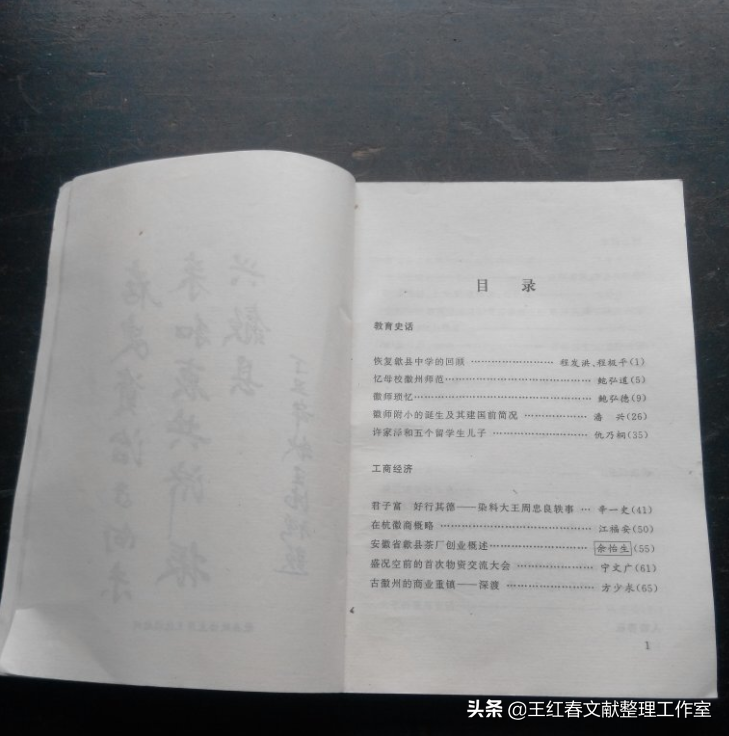 目 录
教育史话
恢复歙县中学的回顾 …………………… 程发洪、程极平(1)
忆母校徽州师范…………………………………… 鲍弘道(5)
徽师琐忆…………………………………………… 鲍弘德(9)
徽师附小的诞生及其建国前简况 ……………… 潘 兴(26)
许家泽和五个留学生儿子 ……………………… 仇乃桐(35)
工商经济
君子富 好行其德——染料大王周忠良轶事 … 辛一史(41)
在杭徽商概略 …………………………………… 江福安(50)
安徽省歙县茶厂创业概述………………………… 余怡生(55)
盛况空前的首次物资交流大会 ………………… 宁文广(61)
古徽州的商业重镇——深渡 …………………… 方少永(65)
1
头条 @王红春文献整理工作室